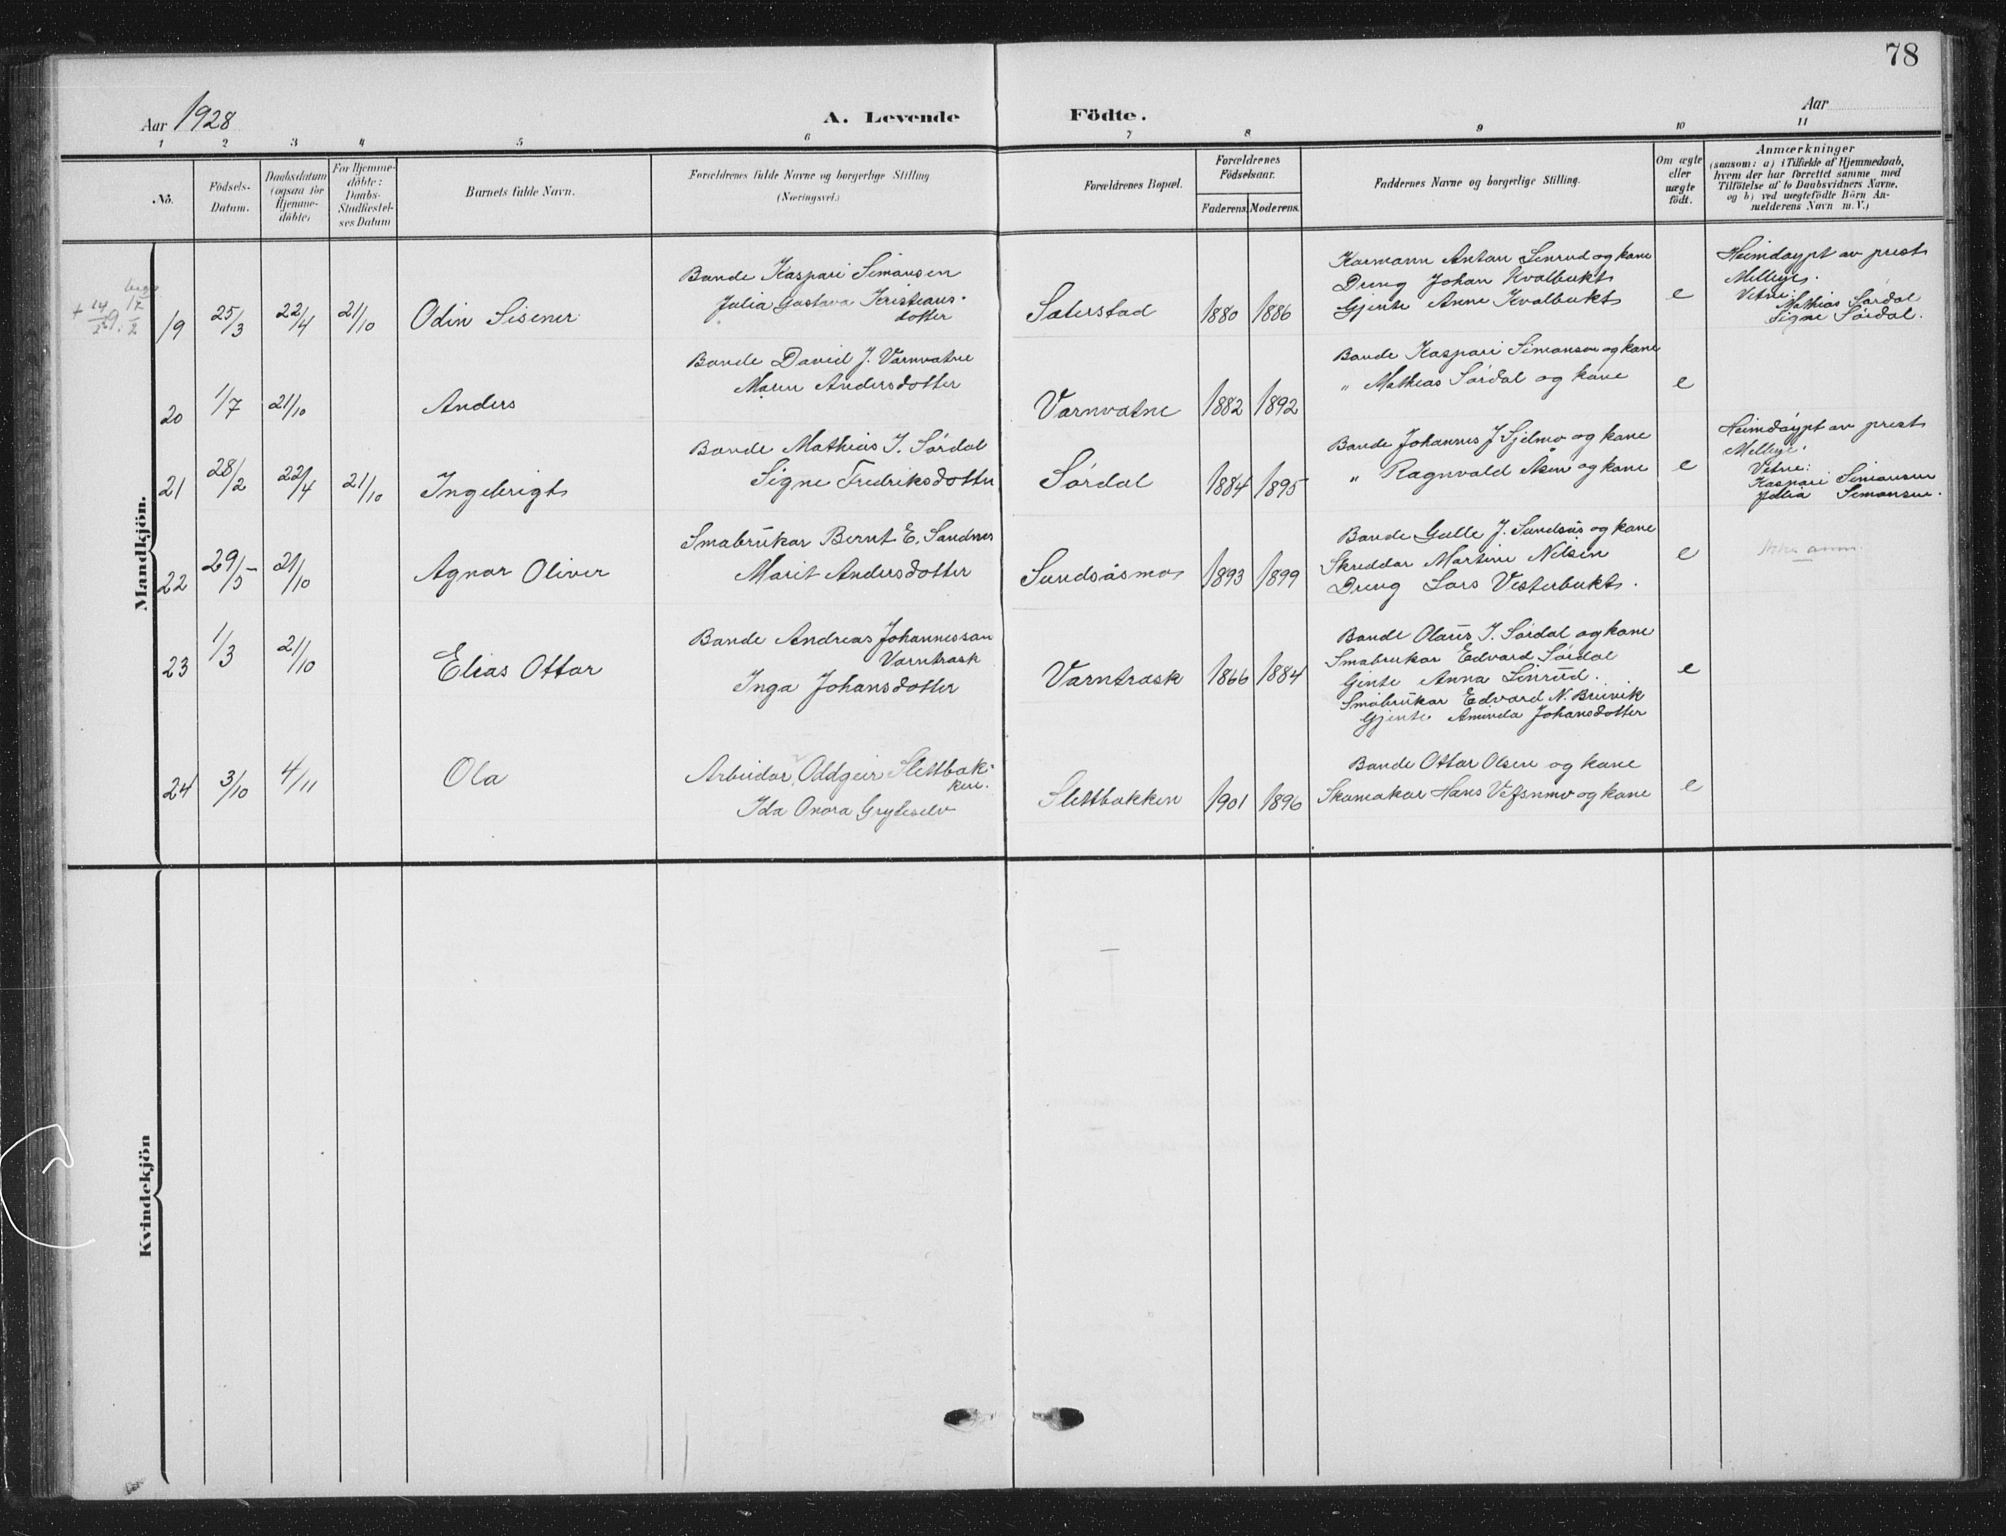 78
Aar 1928
A. Levende Födte.
Aar
1 2 3 4 5 6 7 8 9 10 11
No.
Födsels-
Datum.
Daabsdatum
(ogsaa for
Hjemme-
döbte)
For Hjemme-
döbte:
Daabs-
Stadfæstel-
ses Datum
Barnets fulde Navn.
Forældrenes fulde Navne og borgerlige Stilling
(Næringsvei.)
Forældrenes Bopæl.
Forældrenes
Födselsaar.
Faderens. Moderens.
Faddernes Navne og borgerlige Stilling.
Om ægte
eller
uægte
födt.
Anmærkninger
(saasom: a) i Tilfælde af Hjemmedaab,
hvem der har forrettet samme med
Tilföielse af to Daabsvidners Navne.
og b) ved uægtefödte Börn An-
melderens Navn m. V.)
Mandkjön.
19 25/3 22/4 21/10 Odin Sisener
Bonde Kaspari Simonsen
Julia Gustava Kristians-
dotter
Sæterstad 1880 1886
Kormann Anton Linrud og kone
Dreng Johan Kvalbukt
Gjente Anne Kvalbukt
e
Heimdøypt av prest
Millige.
Vitne:
Mathias Sørdal
Signe Sørdal.
20 1/7 21/10 Anders
Bonde David J. Varnvatne
Maren Andersdotter
Varnvatne 1882 1892
Bonde Kaspari Simonsen og kone
" Mathias Sørdal og kone
e
21 28/2 22/4 21/10 Ingebrigt
Bonde Mathias I. Sørdal
Signe Fredriksdotter
Sørdal 1884 1895
Bonde Johannes J Sjelmo og kone
" Ragnvald Åsen og kone
e
Heimdøypt av prest
Millige.
Vitne:
Kaspari Simonsen
Julia Simonsen.
22 29/5 21/10 Agnar Oliver
Småbrukar Bernt E. Sandnes
Marit Andersdotter
Sundsåsmo 1893 1899
Bonde Gulle J. Sundsås og kone
Skreddar Martin Nilsen
Dreng Lars Vesterbukt.
e
23 1/3 21/10 Elias Ottar
Bonde Andreas Johannesson
Varntrask
Inga Johansdotter
Varntrask 1866 1884
Bonde Olaus I. Sørdal og kone
Småbrukar Edvard Sørdal
Gjente Anna Linrud.
Småbrukar Edvard N. Breivik
Gjente Aminda Johansdotter
e
24 3/10 4/11 Ola
Arbeidar Oddgeir Slettbak-
ken.
Ida Onora Gryteselv
Slettbakken 1901 1896
Bonde Ottar Olsen og kone
Skomakar Hans Vefsnmo og kone
e
Kvindekjön